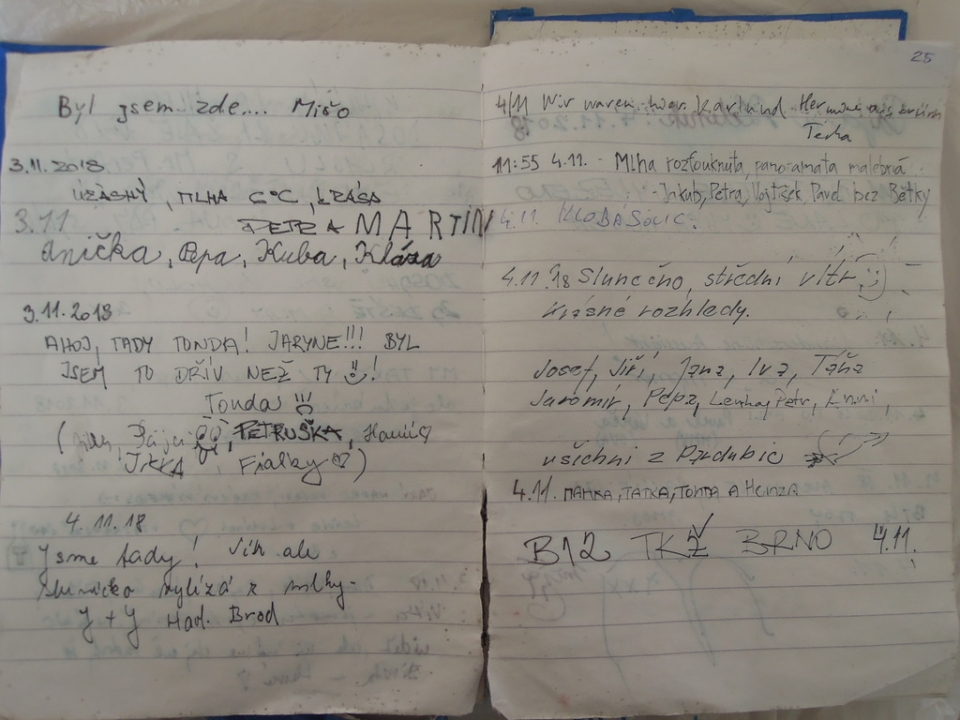 Byl jsem zde.... Mišo
3.11.2018
ÚŽASNÝ, MLHA 6°C, KRÁSA
3.11 PETR A MARTIN
Anička, Pepa, Kuba, Klára
3.11.2018
AHOJ, TADY TONDA! JARYNE!!! BYL
JSEM TU DŘÍV NEŽ TY !
Tonda !!!
PETRUŠKA,
JIKKA Fialky )
4.11.18
Jsme tady! Jih ale
slunicko vylízá z mlhy.
J + J Hav. Brod
25
4/11 Wir waren hier Karl und Hermine aus
11:55 4.11. - Mlha rozfouknuta, panoramata malebná
- Jakub, Petra, Vojtíšek, Pavel bez Bětky
4.11. KLOBASOLIC.
4.11.18 Slunečno, střední vítr
krásné rozhledy.
Josef, Jiří, Jana, Iva, Táňa
Jaromír, Pepa, Petr,
všichni z Pardubic
4.11. MAMKA, TAŤKA, TONDA A HEINZA
B12 TKŽ BRNO 4.11.